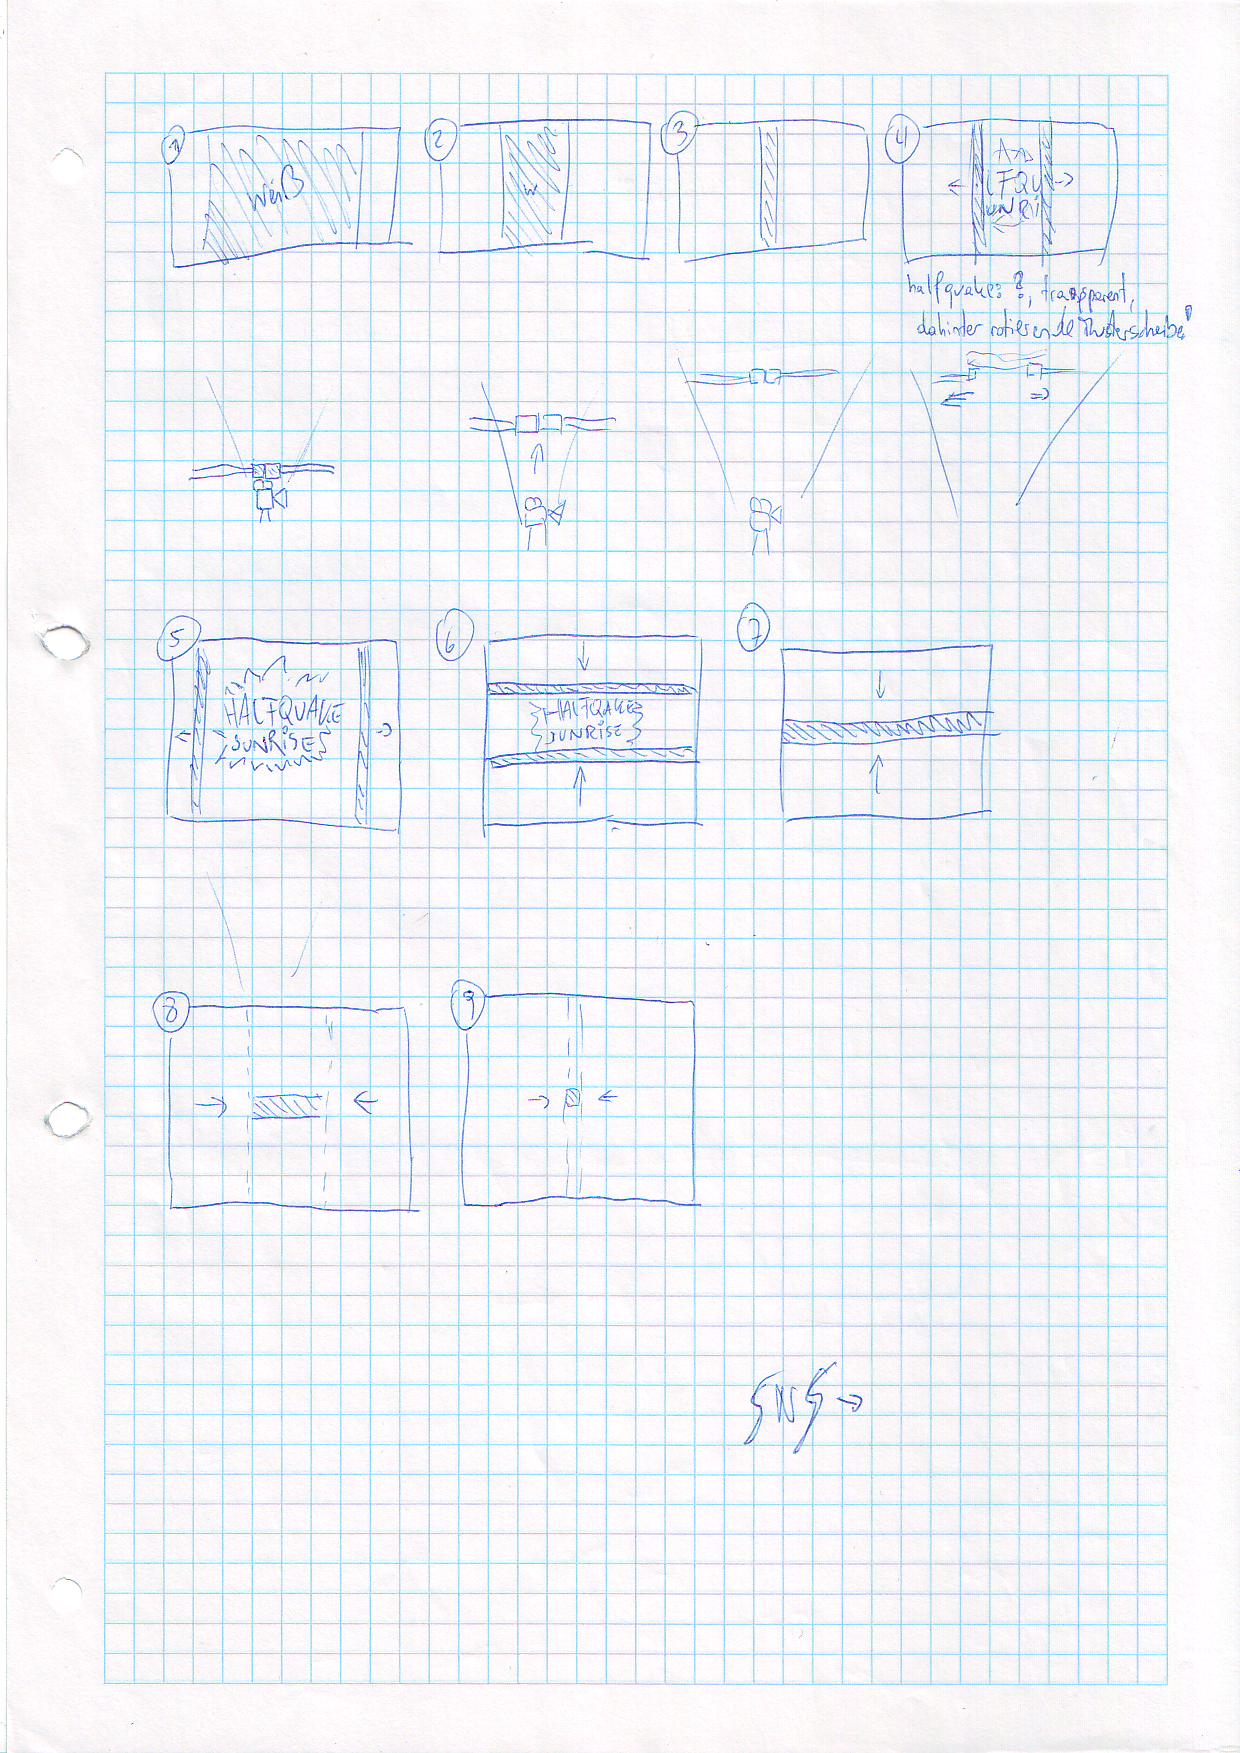 1
2
3
4
weiß
w
LFQU
UNRI
halfquake: ?, transparent,
dahinter rotierende Musterscheibe!
5
6
7
HALFQUAKE
SUNRISES
HALFQAKE
SUNRISE
8
9
SNS →